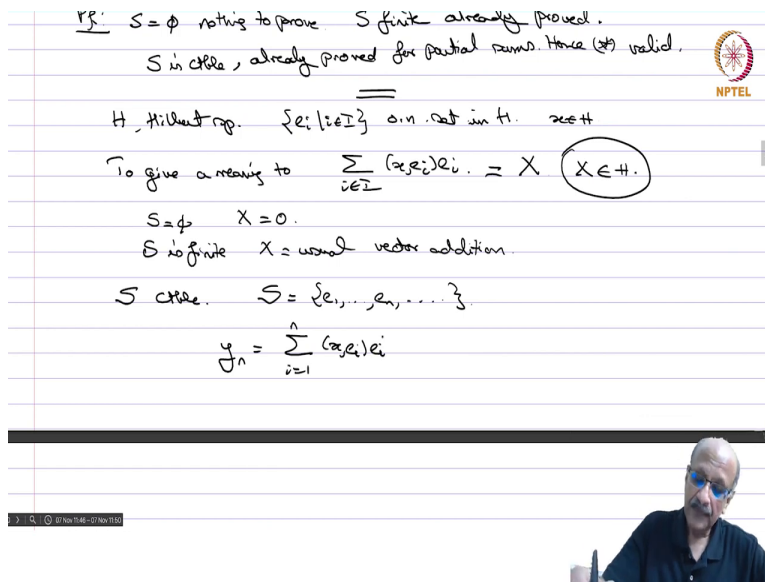 Pf: S = ϕ nothing to prove S finite already proved.
S is ctble, already proved for partial sums. Hence (*) valid.
NPTEL
H, Hilbert sp. {e_i | i∈I} o.n. set in H. x∈H
To give a meaning to ∑_{i∈I} (x,e_i)e_i. = X X∈H.
S=ϕ X=0.
S is finite X = usual vector addition.
S ctble. S = {e_1,..,e_n,....}.
y_n = ∑_{i=1}^{n} (x,e_i)e_i
07 Nov 11:46 - 07 Nov 11:50